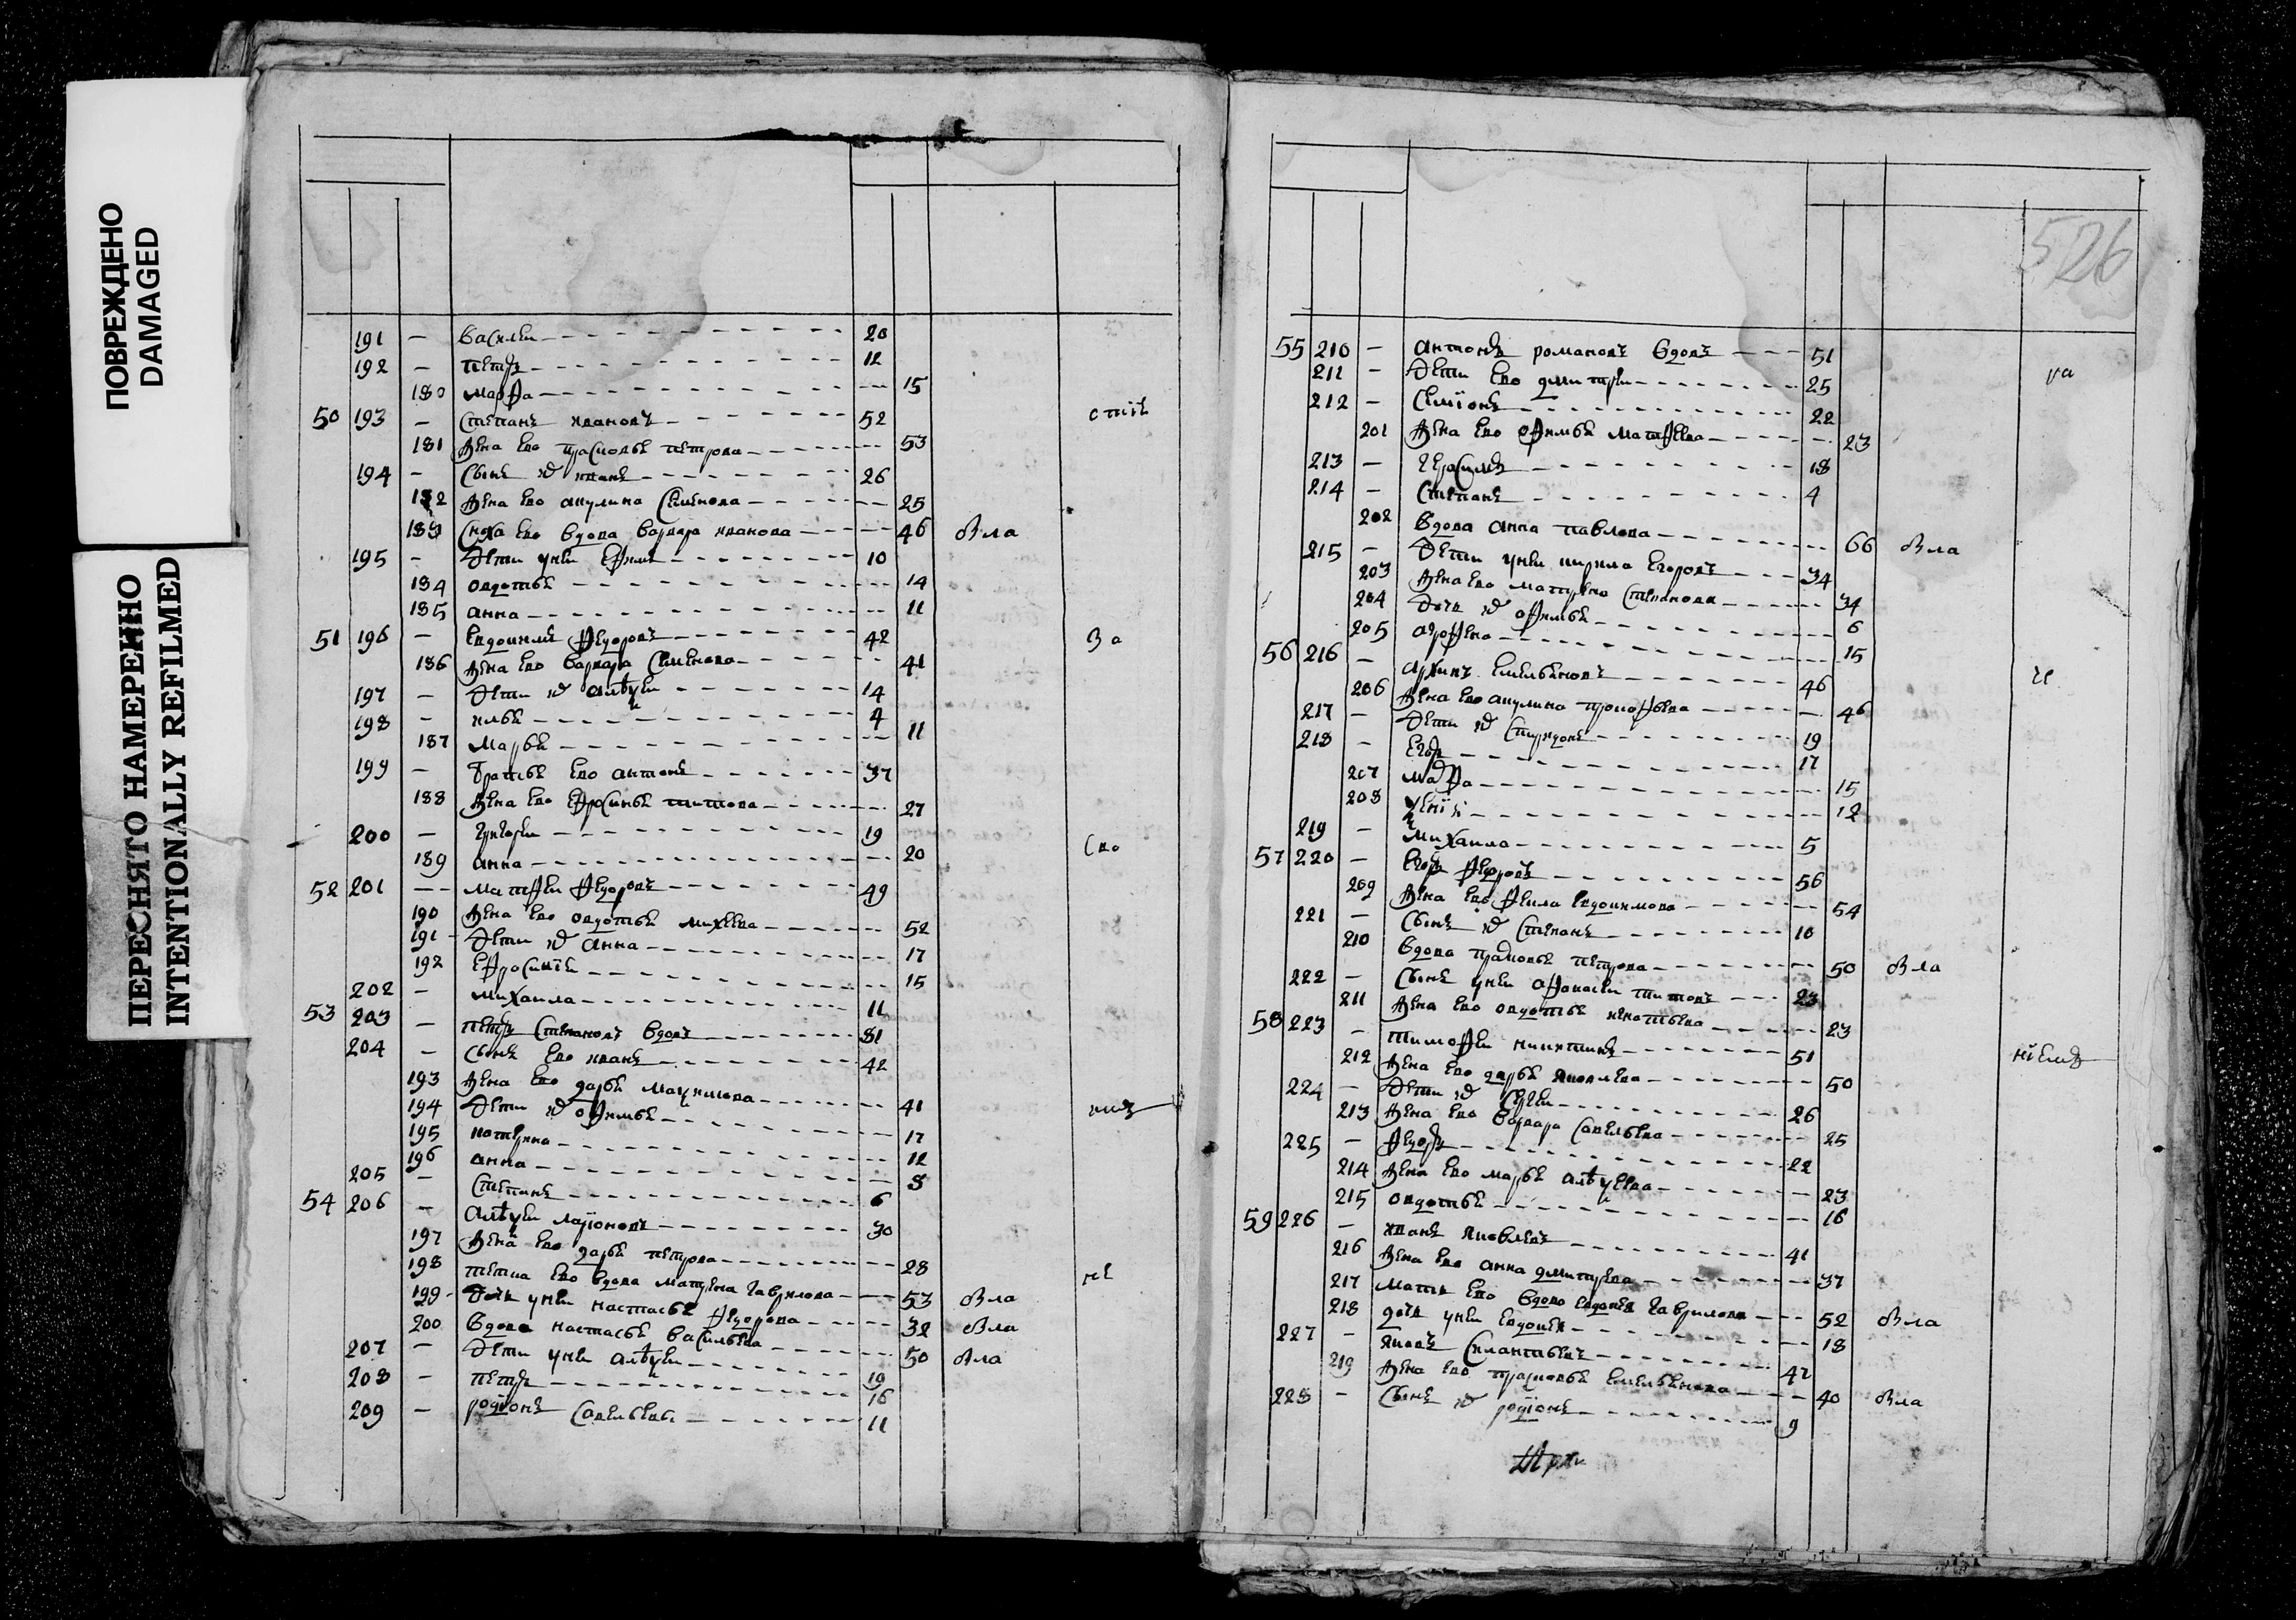 ПОВРЕЖДЕНО
DAMAGED
ПЕРЕСНЯТО НАМЕРЕННО
INTENTIONALLY REFILMED
191 — василеи 20
192 — петръ 12
180 марфа 15
50 193 — степанъ ивановъ 52
181 жена ево прасковья петрова 53
194 — сынъ их иванъ 26
182 жена ево акулина семенова 25
183 сноха ево вдова варвара иванова 46 вла
195 — дети у неи ефимъ 10
184 овдотья 14
185 анна 11
51 196 — евдокимъ федоровъ 42 за
186 жена ево варвара семенова 41
197 — дети их алѣксеи 14
198 — илья 4
187 марья 11
199 — братья ево антонъ 37
188 жена ево ефросинья титова 27
200 — григореи 19
189 анна 20 сво
52 201 — матфеи федоровъ 49
190 жена ево овдотья михеева 52
191 дети их анна 17
192 ефросинїя 15
202 — михаила 11
53 203 — петръ степановъ вдовъ 81
204 — сынъ ево иванъ 42
193 жена ево дарья макѯимова 41
194 дети их офимья 17
195 катерина 12
196 анна 8
205 — степанъ 6
54 206 — алѣксеи ларїоновъ 30
197 жена ево дарья петрова 28
198 тетка ево вдова матрена гаврилова 53 вла
199 дочь у неи настасья федорова 32 вла
200 вдова настасья васильева 50 вла
207 — дети у неи алѣксеи 19
208 — петръ 16
209 — родїонъ савельевъ 11
526
55 210 — антонъ романовъ вдовъ 51
211 — дети ево дмитреи 25
212 — семїонъ 22
201 жена ево офимья матфеева 23
213 — герасимъ 18
214 — степанъ 4
202 вдова анна павлова 66 вла
215 — дети у неи кирила егоровъ 34
203 жена ево матрена степанова 34
204 дочь их офимья 6
205 агрофена 15
56 216 — архипъ емельяновъ 46
206 жена ево акулина прокофьева 46
217 — дети их спиридонъ 19
218 — егоръ 17
207 марфа 15
208 12
219 — михаила 5
57 220 — егоръ федоровъ 56
209 жена ево фекла евдокимова 54
221 — сынъ их степанъ 10
210 вдова прасковья петрова 50 вла
222 — сынъ у неи афонасеи титовъ 23
211 жена ево овдотья игнатьева 23
58 223 — тимофеи никитинъ 51
212 жена ево дарья яковлева 50
224 — дети их сергеи 26
213 жена ево варвара савельева 25
225 — федоръ 22
214 жена ево марья алѣксеева 23
215 овдотья 16
59 226 — иванъ яковлевъ 41
216 жена ево анна дмитреева 37
217 мать ево вдова евдокея гаврилова 52 вла
218 дочь у неи евдокея 18
227 — яковъ силантьевъ 42
219 жена ево прасковья емельянова 40 вла
228 — сынъ их родїонъ 9